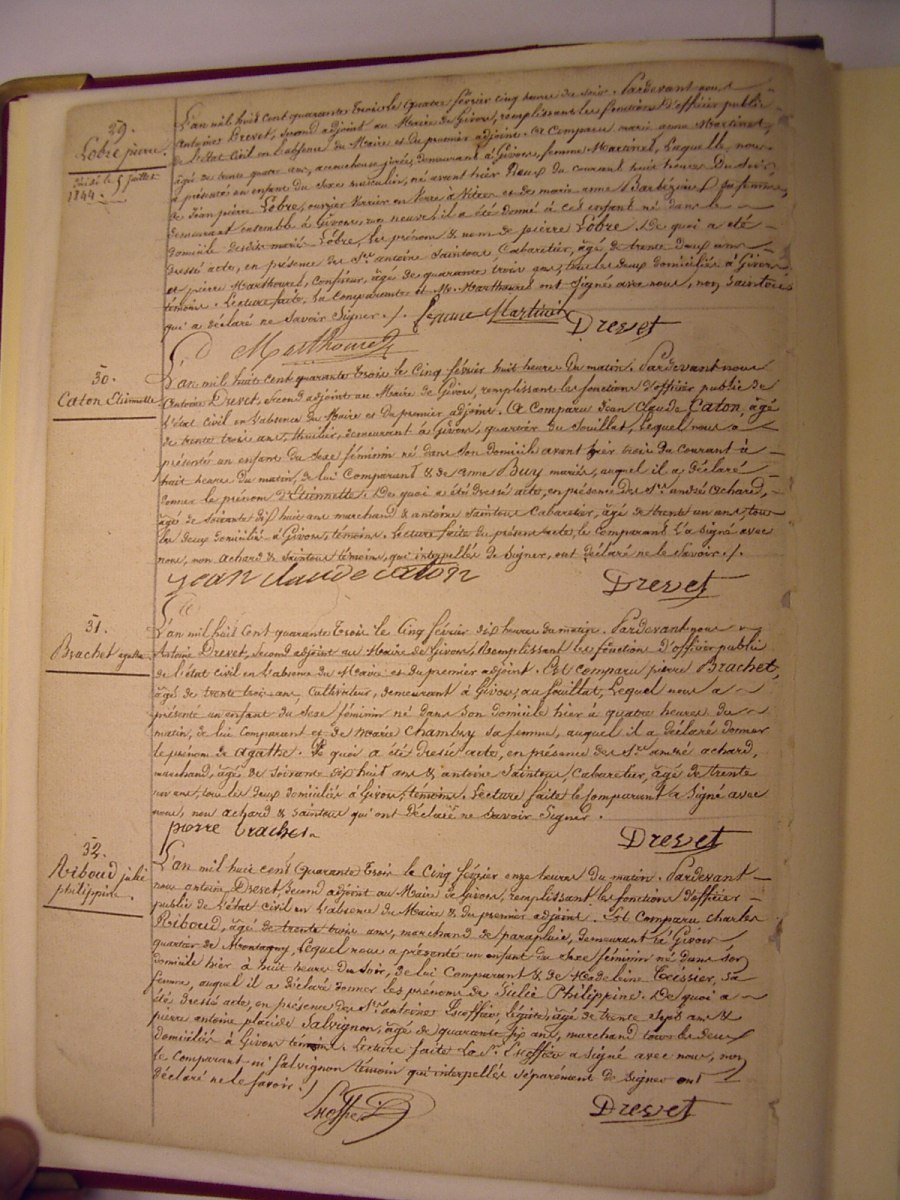 29.
Lobre pierre.
Décédé le 5 Juillet
1844.
L'an mil huit cent quarante trois le quatre février cinq heures du soir. Pardevant nous
Antoine Drevet, second adjoint au Maire de Givors, remplissant les fonctions d'officier public
de l'état civil en l'absence du Maire et du premier adjoint. Est comparu marie anne Martinet,
âgé de trente quatre ans, accoucheuse jurée, demeurant à Givors, femme Martinet, Laquelle nous
a présenté un enfant du sexe masculin, né avant hier Deux du courant huit heures du soir,
de Jean pierre Lobre, ouvrier verrier en verre à vitres et de marie anne sa femme,
demeurant ensemble à Givors, il a été donné à cet enfant né dans le
domicile desdits mariés Lobre, les prénom & nom de pierre Lobre. De quoi a été
dressé acte, en présence des Srs antoine Saintous Cabaretier, âgé de trente deux ans
et pierre Marthouret, Confiseur, âgé de quarante trois ans, tous les deux domiciliés à Givors
témoins. Lecture faite, la Comparante et Mr. Marthouret ont signé avec nous, non Saintous
qui a déclaré ne savoir signer ./. femme Martinet
Drevet
Marthouret
30.
Caton Etiennette
L'an mil huit cent quarante trois le cinq février huit heures du matin. Pardevant nous
Antoine Drevet, second adjoint au Maire de Givors, remplissant les fonctions d'officier public de
l'état civil en l'absence du Maire et du premier adjoint. A Comparu Jean Claude Caton, âgé
de trente trois ans, thuilier, demeurant à Givors, quartier du fouillat, Lequel nous a
présenté un enfant du sexe féminin né dans son domicile avant hier trois du courant à
huit heures du matin, de lui Comparant & de anne Buy mariés, auquel il a déclaré
donner le prénom d'Etiennette. De quoi a été dressé acte, en présence des Srs andré achard,
âgé de soixante dix huit ans marchand & antoine Saintous Cabaretier, âgé de trente un ans, tous
les deux domiciliés à Givors, témoins. Lecture faite du présent acte, le Comparant l'a signé avec
nous, non achard & Saintous témoins, qui interpellés de signer, ont déclaré ne le savoir ./.
jean claude caton
Drevet
31.
Brachet agathe
L'an mil huit cent quarante trois le cinq février dix heures du matin. Pardevant nous
Antoine Drevet, second adjoint au Maire de Givors, Remplissant les fonctions d'officier public
de l'état civil en l'absence du Maire et du premier adjoint. Est Comparu pierre Brachet,
âgé de trente trois ans, Cultivateur, demeurant à Givors, au fouillat, Lequel nous a
présenté un enfant du sexe féminin né dans son domicile hier à quatre heures du
matin, de lui Comparant et de Marie Chambry sa femme, auquel il a déclaré donner
le prénom de agathe. De quoi a été dressé acte, en présence des Srs andré achard,
marchand, âgé de soixante dix huit ans & antoine Saintous Cabaretier, âgé de trente
un ans, tous les deux domiciliés à Givors, témoins. Lecture faite le Comparant a signé avec
nous, non achard & Saintous qui ont déclaré ne savoir signer.
pierre brachet
Drevet
32.
Riboud julie
philippine.
L'an mil huit cent quarante trois le cinq février onze heures du matin. Pardevant
nous antoine Drevet second adjoint au Maire de Givors, remplissant les fonctions d'officier
public de l'état civil en l'absence du Maire & du premier adjoint. Est Comparu charles
Riboud, âgé de trente trois ans, marchand de parapluie, demeurant à Givors
quartier de Montagny, Lequel nous a présenté un enfant du sexe féminin né dans son
domicile hier à huit heures du soir, de lui Comparant & de Madeleine Teissier, sa
femme, auquel il a déclaré donner les prénoms de Julie Philippine. De quoi a
été dressé acte, en présence des Srs Lhoffier, légiste, âgé de trente sept ans &
pierre antoine placide Salvignon, âgé de quarante six ans, marchand tous les deux
domiciliés à Givors témoins. Lecture faite Le Sr. Lhoffier a signé avec nous, non
le Comparant ni Salvignon témoin qui interpellés séparément de signer ont
déclaré ne le savoir ./.
Lhoffier
Drevet